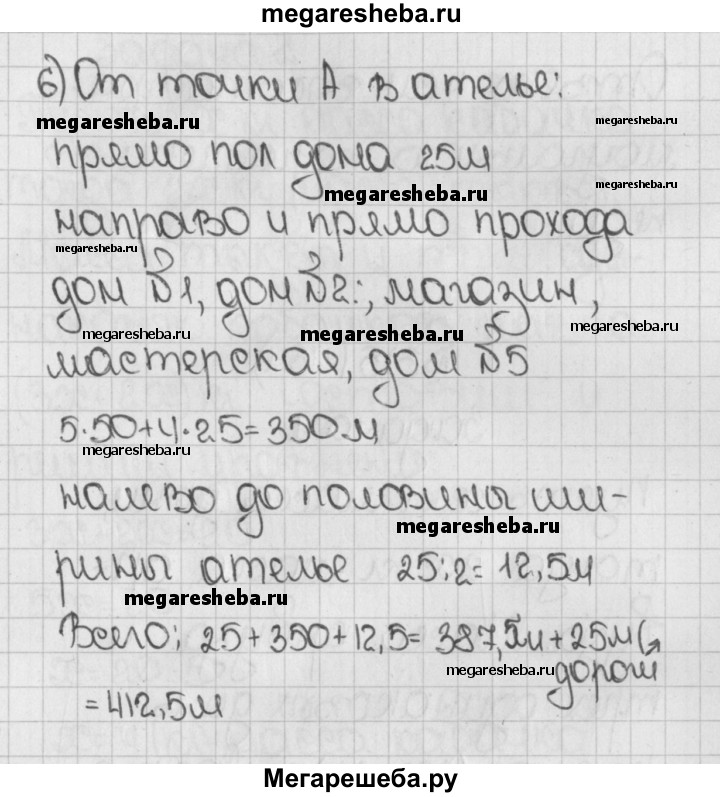 megaresheba.ru
б) От точки А в ателье:
megaresheba.ru
megaresheba.ru
прямо пол дома 25м
megaresheba.ru
megaresheba.ru
направо и прямо прохода
megaresheba.ru
дом №1, дом №2:, магазин,
megaresheba.ru
megaresheba.ru
megaresheba.ru
мастерская, дом №5
5·50+4·25=350м
megaresheba.ru
налево до половины ши-
megaresheba.ru
рины ателье 25:2= 12,5м
megaresheba.ru
Всего: 25+350+12,5= 387,5м+25м(
megaresheba.ru
дороги
=412,5м
Мегарешеба.ру